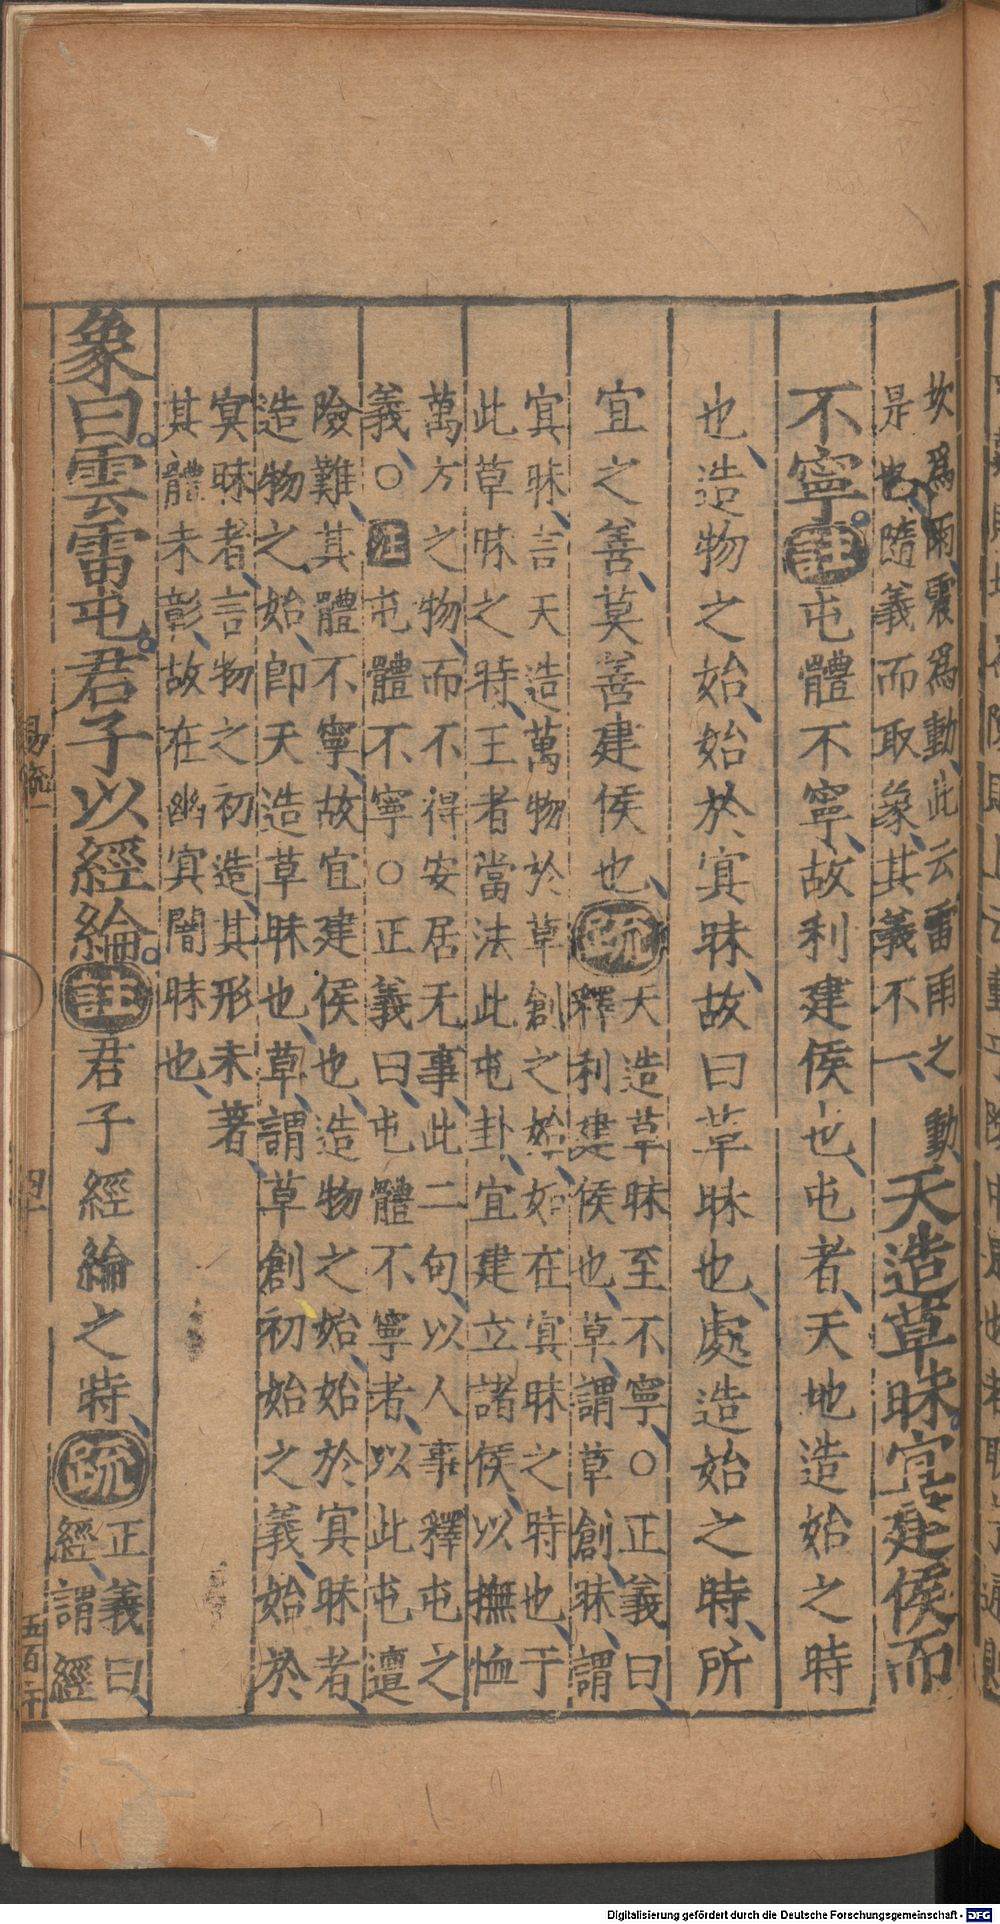 坎爲雨、震爲動、此云雷雨之動、
是也、隨義而取象、其義不一、
天造草昧。宜建侯而
不寧。註屯體不寧、故利建侯也、屯者、天地造始之時
也、造物之始、始於冥昧、故曰草昧也、處造始之時、所
宜之善、莫善建侯也、疏
天造草昧至不寧、○正義曰、
釋利建侯也、草、謂草創、昧、謂
冥昧、言天造萬物於草創之始、如在冥昧之時也、于
此草昧之時、王者當法此屯卦、宜建立諸侯、以撫恤
萬方之物、而不得安居无事、此二句、以人事釋屯之
義、○注屯體不寧○正義曰、屯體不寧者、以此屯遭
險難、其體不寧、故宜建侯也、造物之始、始於冥昧者、
造物之始、即天造草昧也、草、謂草創初始之義、始於
冥昧者、言物之初造、其形未著、
其體未彰、故在幽冥闇昧也、
象曰。雲雷屯。君子以經綸。註君子經綸之時、疏
正義曰、
經、謂經
易疏一
四十
Digitalisierung gefördert durch die Deutsche Forschungsgemeinschaft - DFG